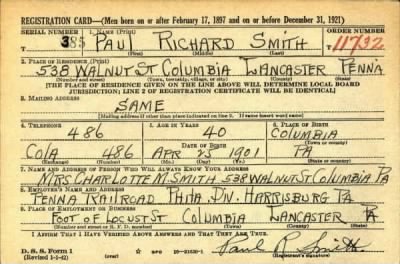 REGISTRATION CARD—(Men born on or after February 17, 1897 and on or before December 31, 1921)
SERIAL NUMBER 1. NAME (Print) ORDER NUMBER
385 PAUL RICHARD SMITH 11732
(First) (Middle) (Last)
2. PLACE OF RESIDENCE (Print)
538 WALNUT ST COLUMBIA LANCASTER PENN'A
(Number and street) (Town, township, village, or city) (County) (State)
[THE PLACE OF RESIDENCE GIVEN ON THE LINE ABOVE WILL DETERMINE LOCAL BOARD
JURISDICTION; LINE 2 OF REGISTRATION CERTIFICATE WILL BE IDENTICAL]
3. MAILING ADDRESS
SAME
[Mailing address if other than place indicated on line 2. If same insert word same]
4. TELEPHONE 5. AGE IN YEARS 6. PLACE OF BIRTH
486 40 COLUMBIA
DATE OF BIRTH (Town or county)
COLA 486 APR 25 1901 PA
(Exchange) (Number) (Mo.) (Day) (Yr.) (State or country)
7. NAME AND ADDRESS OF PERSON WHO WILL ALWAYS KNOW YOUR ADDRESS
MRS CHARLOTTE M SMITH 538 WALNUT ST COLUMBIA PA
8. EMPLOYER'S NAME AND ADDRESS
PENNA RAILROAD PHILA. DIV. HARRISBURG PA
9. PLACE OF EMPLOYMENT OR BUSINESS
FOOT OF LOCUST ST COLUMBIA LANCASTER PA
(Number and street or R. F. D. number) (Town) (County) (State)
I AFFIRM THAT I HAVE VERIFIED ABOVE ANSWERS AND THAT THEY ARE TRUE.
D. S. S. Form 1
(Revised 1-1-42) GPO 16—21630-1 Paul R Smith